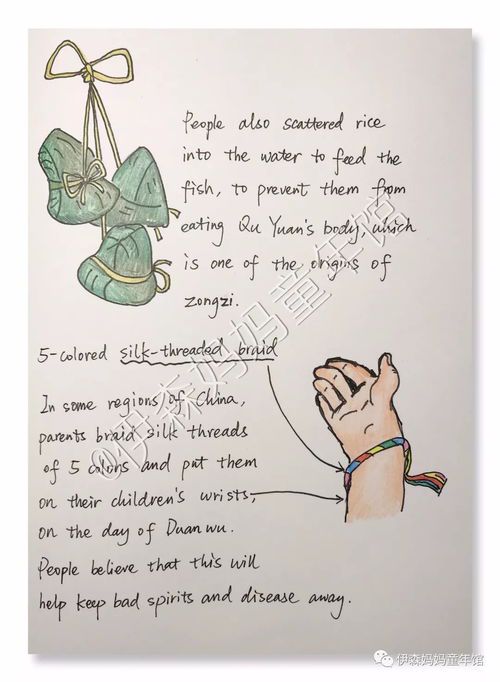 People also scattered rice
into the water to feed the
fish, to prevent them from
eating Qu Yuan's body, which
is one of the origins of
zongzi.
5-colored silk-threaded braid
In some regions of China,
parents braid silk threads
of 5 colors and put them
on their children's wrists,
on the day of Duanwu.
People believe that this will
help keep bad spirits and disease away.
@伊森妈妈童年馆
伊森妈妈童年馆